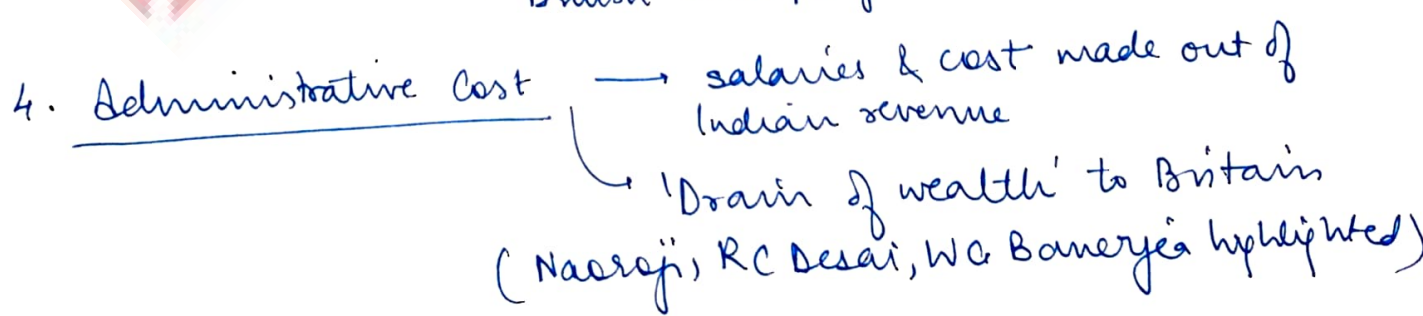 4. Administrative Cost → salaries & cost made out of
Indian revenue
→ 'Drain of wealth' to Britain
(Naoroji, RC Desai, WC Banerjea highlighted)